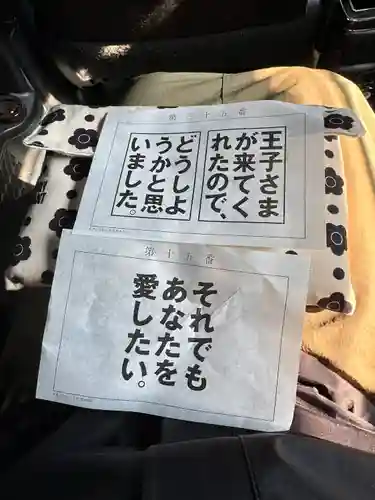 第二十五番
王子さま
が来てく
れたので、
どうしよ
うかと思
いました。
第十五番
それでも
あなたを
愛したい。